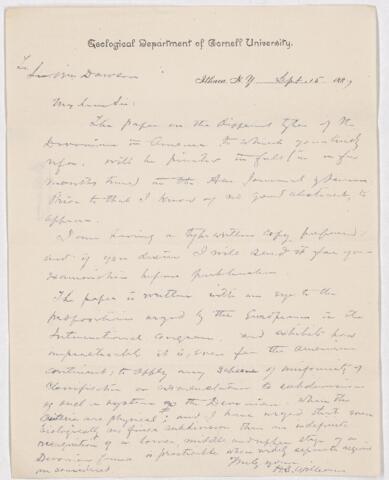 Geological Department of Cornell University.
Ithaca, N.Y. Sept. 15 1887
To Sir Wm Dawson
My dear Sir:
The paper on the different types of the
Devonian in America to which you kindly
refer, will be printed in full (in a few
months time) in the Am Journal of Science.
Prior to that I know of no good abstract, to
appear.
I am having a type written copy prepared
and if you desire I will send it for your
examination before publication.
The paper is written with an eye to the
propositions urged by the Europeans in the
International congress, and exhibits how
impracticable it is, even for the American
continent, to apply any scheme of uniformity of
classification or nomenclature to subdivisions
of such a system as the Devonian. When the
criteria are physical; and I have urged that even
biologically no finer subdivision than an indefinite
recognition of a lower, middle and upper stage of a
Devonian fauna is practicable when widely separate regions
are considered.
Truly yours,
H.S. Williams